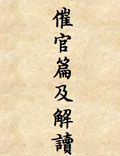 催官篇及解讀